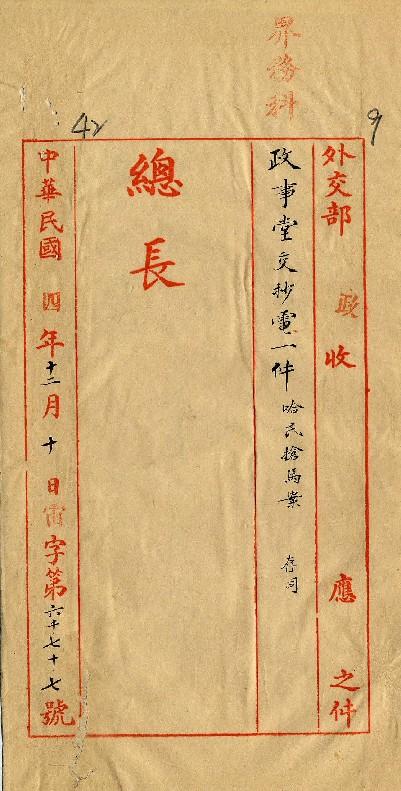 界務科
9
42
外交部 政 收 應 之件
政事堂交抄電一件 哈民搶馬案 存司
總長
中華民國四年十二月十日電字第六千七十七號